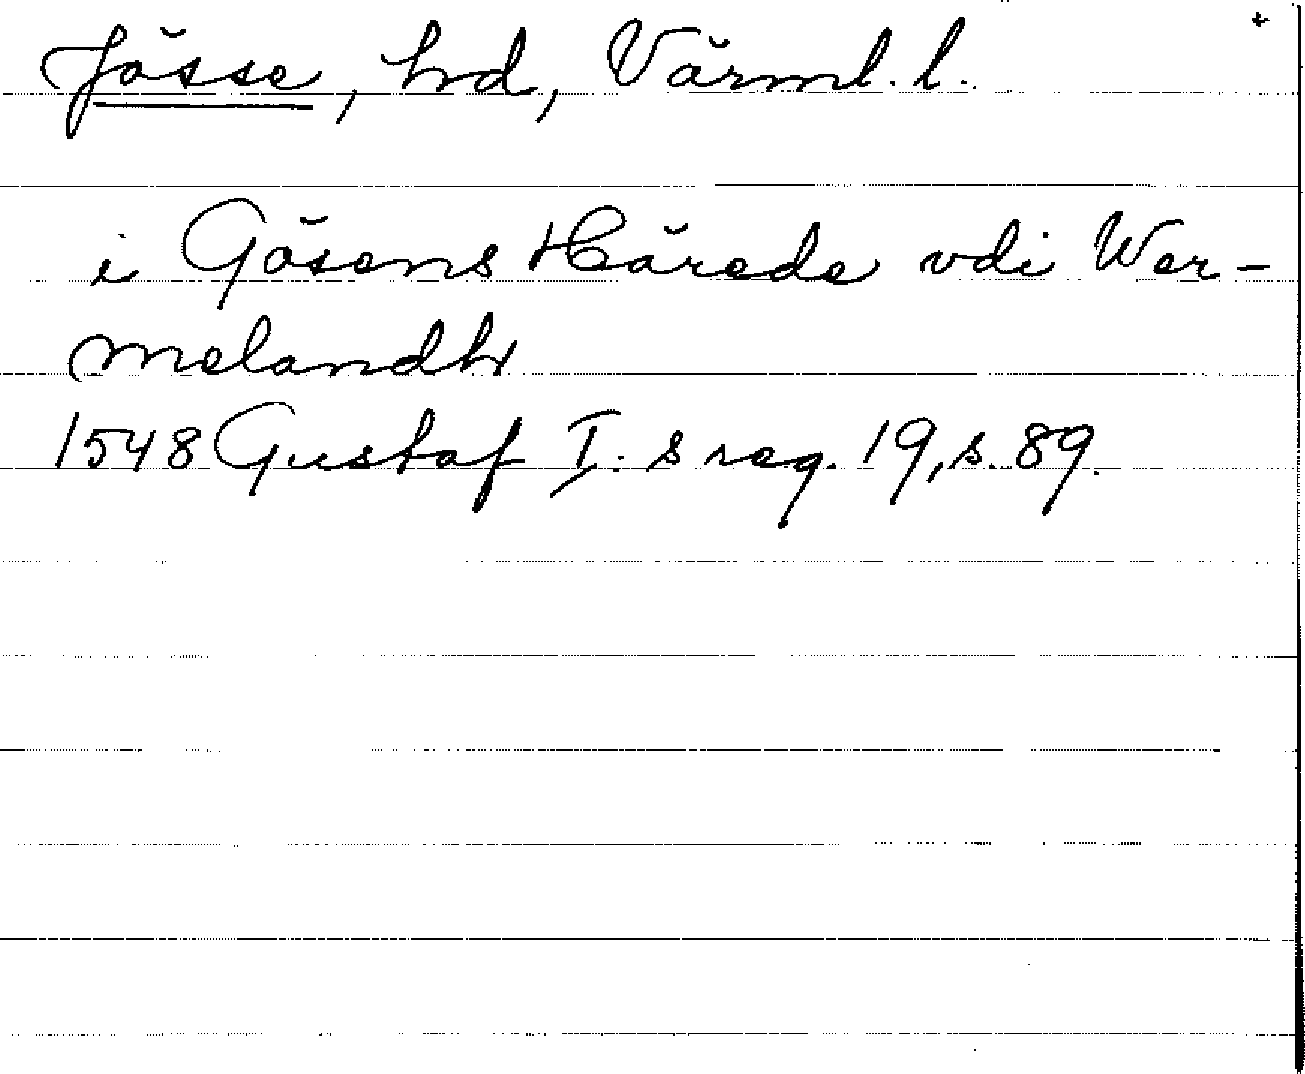 Jösse, hd, Värml. l. +
i Gösens Härede vdi Wer-
melandh
1548 Gustaf I:s reg. 19, s. 89.